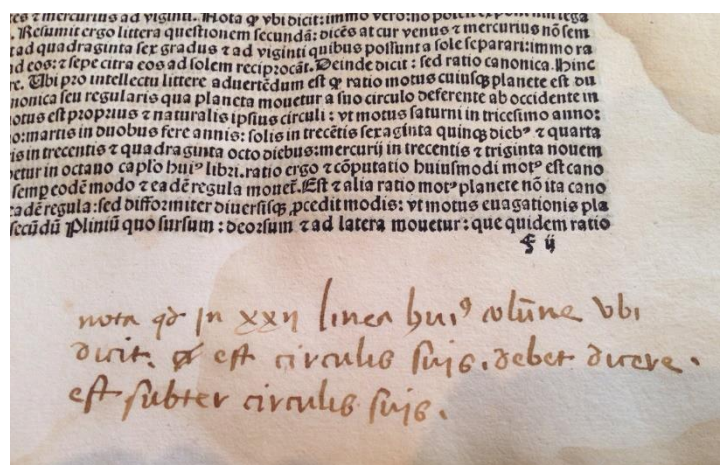 es ⁊ mercurius ad viginti. Nota ꝙ vbi dicit: immo vero: no
Resumit ergo littera questionem secundā: dicēs at cur venus ⁊ mercurius nō sem
t ad quadraginta sex gradus ⁊ ad viginti quibus possunt a sole separari: immo ra
ad eos: ⁊ sepe citra eos ad solem reciprocāt. Deinde dicit: sed ratio canonica. Hinc
re. Ubi pro intellectu littere aduertēdum est ꝙ ratio motus cuiusꝗ planete est du
nonica seu regularis qua planeta mouetur a suo circulo deferente ab occidente in
otus est proprius ⁊ naturalis ipsius circuli: vt motus saturni in tricesimo anno:
o: martis in duobus fere annis: solis in trecētis sexaginta quinꝗ diebꝰ ⁊ quarta
is in trecentis ⁊ quadraginta octo diebus: mercurij in trecentis ⁊ triginta nouem
etur in octauo cap̄lo huiꝰ libri. ratio ergo ⁊ cōputatio huiusmodi motꝰ est cano
semꝑ eodē modo ⁊ ea dē regula mouet̄. Est ⁊ alia ratio motꝰ planete nō ita cano
a dē regula: sed difformiter diuersisꝗ ꝓcedit modis: vt motus euagationis pla
secūdū Pliniū quo sursum: deorsum ⁊ ad latera mouetur: que quidem ratio
ij
nota qd In xxij linea huiꝰ colūne vbi
dicit. est circulis suis. debet dicere.
est subter circulis suis.